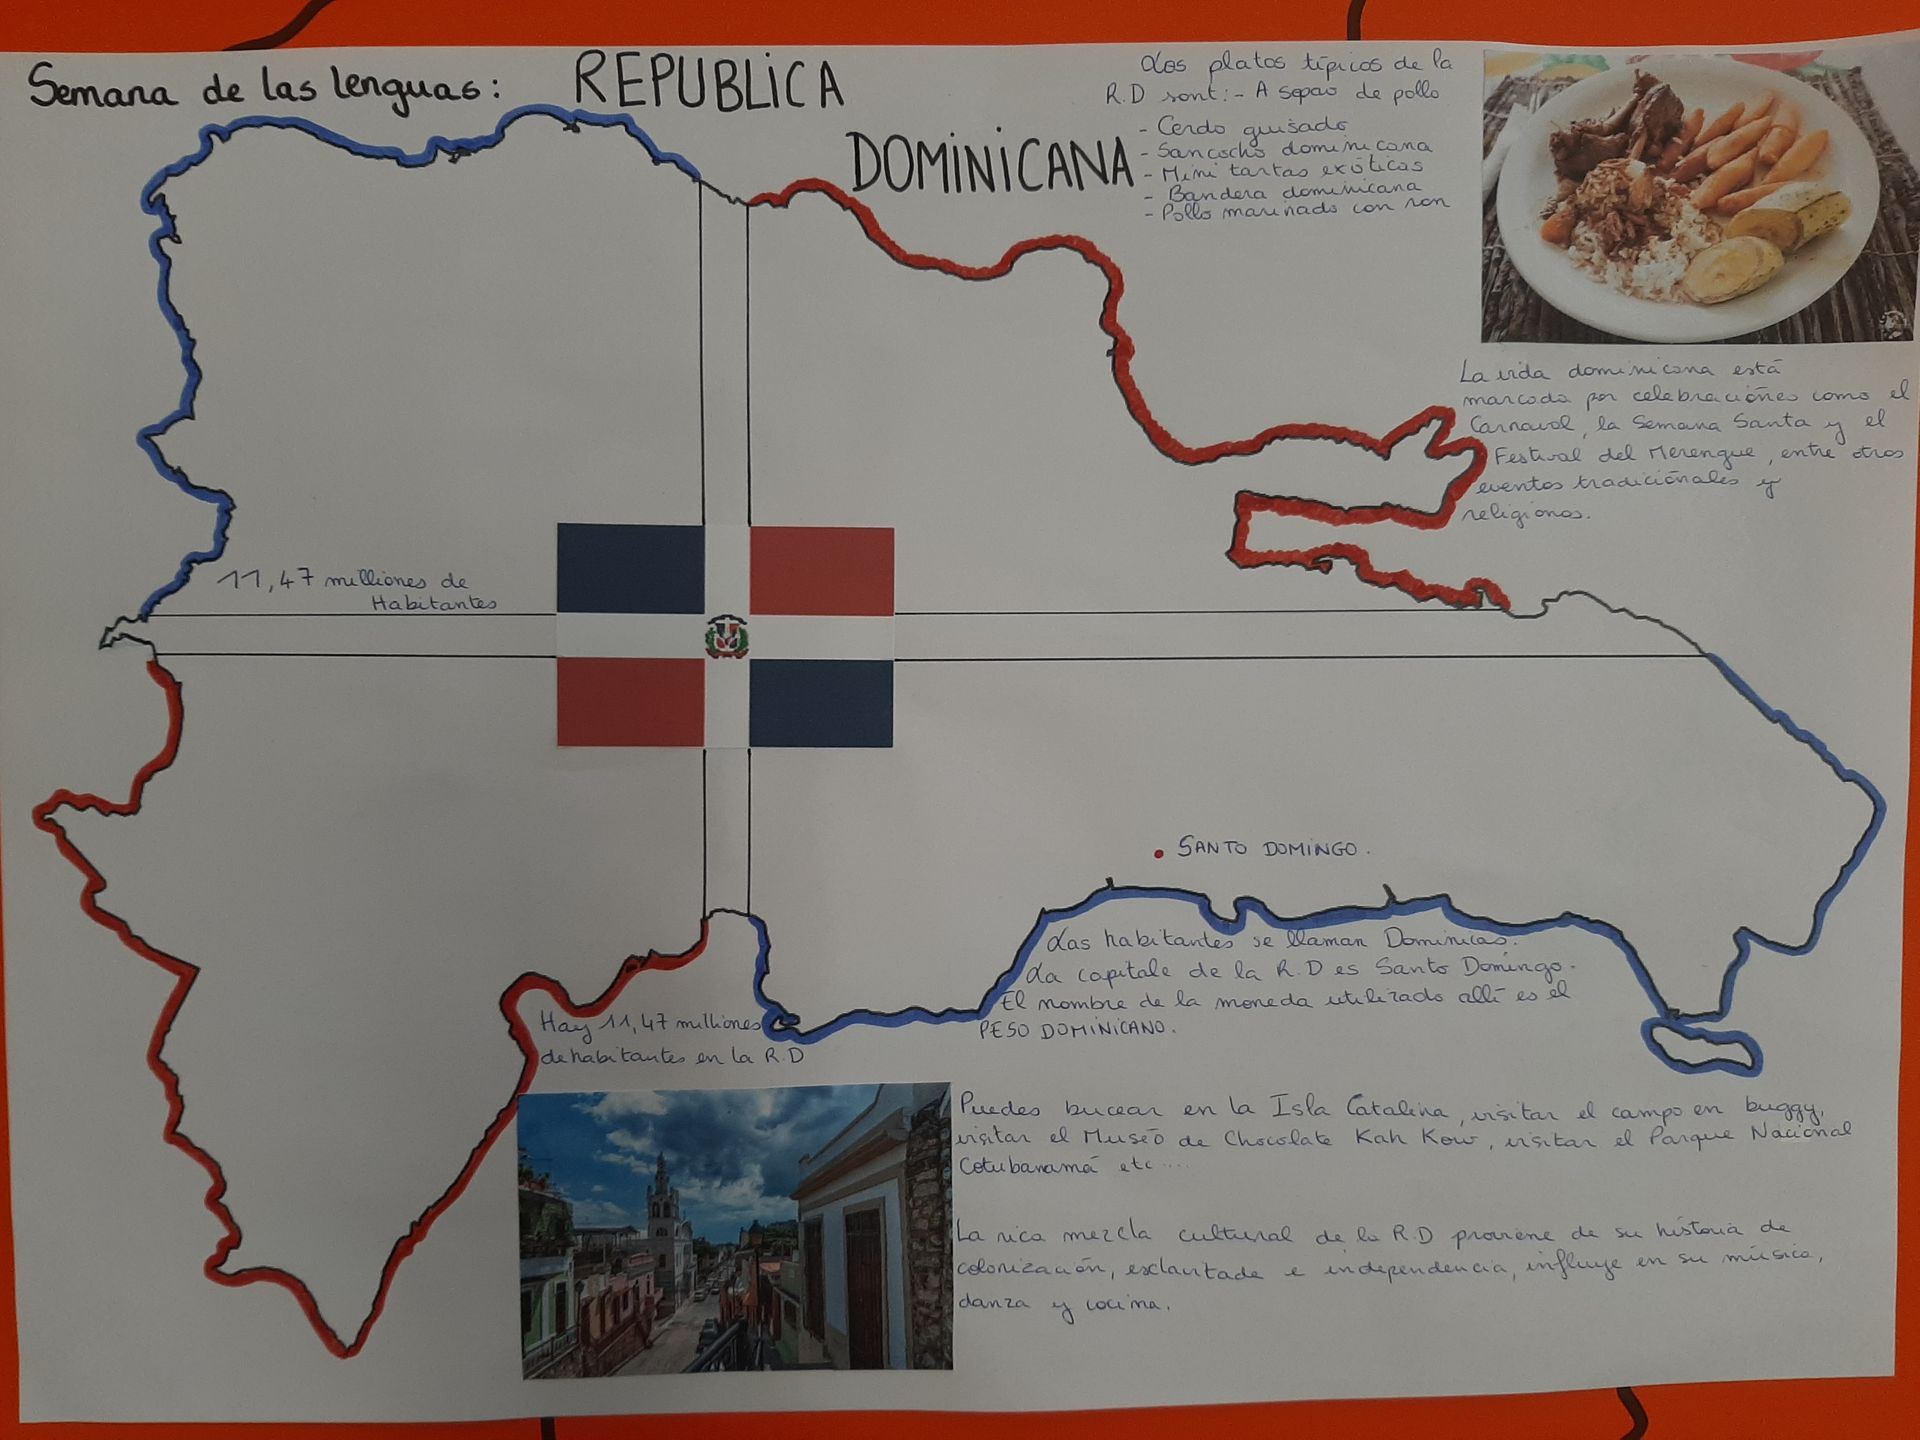 Semana de las lenguas:
REPUBLiCA
DOMiNiCANA
Los platos típicos de la
R.D sont:- A sopao de pollo
- Cerdo guisado
- Sancocho dominicana
- Mini tartas exóticas
- Bandera dominicana
- Pollo marinado con ron
La vida dominicana está
marcada por celebraciónes como el
Carnaval, la Semana Santa y el
Festival del Merengue, entre otros
eventos tradiciónales y
religionos.
11,47 milliones de
Habitantes
SANTO DOMINGO.
Las habitantes se llaman Dominicas.
La capitale de la R.D es Santo Domingo.
El nombre de la moneda utilizado allí es el
PESO DOMINICANO.
Hay 11,47 milliones
de habitantes en la R.D
Puedes bucear en la Isla Catalina, visitar el campo en buggy,
visitar el Museó de Chocolate Kah Kow, visitar el Parque Naciónal
Cotubanamá etc....
La rica mezcla cultural de la R.D proviene de su historia de
colonización, esclavitade e independencia, influye en su música,
danza y cocina.